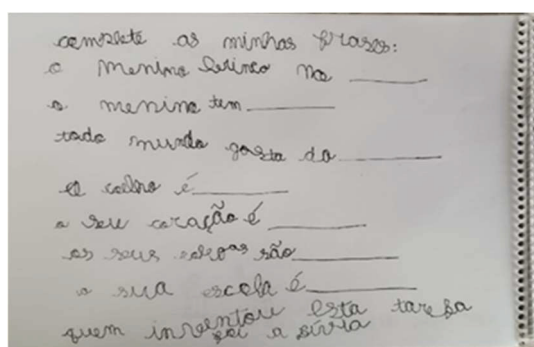 complete as minhas frases:
o menino brinco na ______
o menino tem ______
todo mundo gosta do ______
o coelho é ______
o seu coração é ______
os seus colegas são ______
a sua escola é ______
quem inventou esta tarefa
foi a sívia